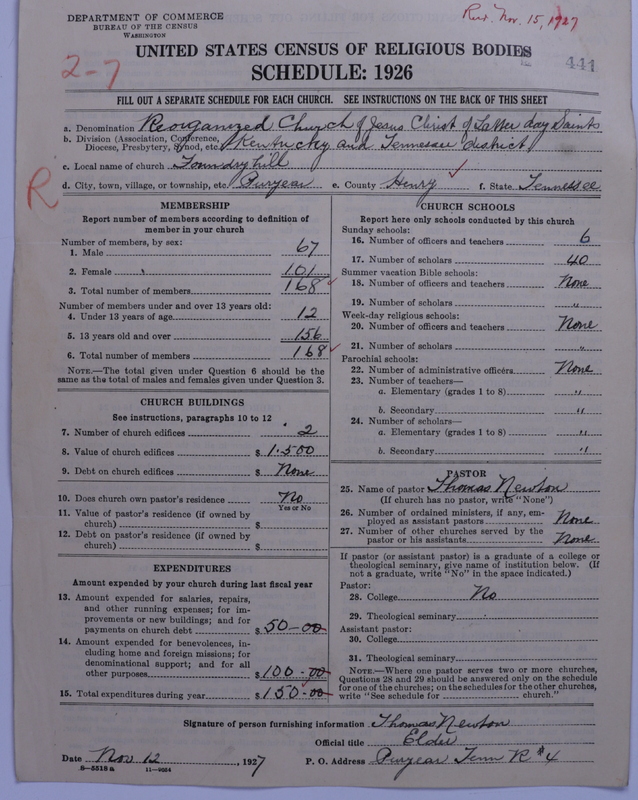 DEPARTMENT OF COMMERCE
BUREAU OF THE CENSUS
WASHINGTON
Rev. Nov. 15, 1927
2-7
441
UNITED STATES CENSUS OF RELIGIOUS BODIES
SCHEDULE: 1926
FILL OUT A SEPARATE SCHEDULE FOR EACH CHURCH. SEE INSTRUCTIONS ON THE BACK OF THIS SHEET
a. Denomination Reorganized Church of Jesus Christ of Latter day Saints
b. Division (Association, Conference, Diocese, Presbytery, Synod, etc.) Kentucky and Tennessee district
c. Local name of church Foundryhill
R
d. City, town, village, or township, etc. Puryear e. County Henry f. State Tennessee
MEMBERSHIP
Report number of members according to definition of
member in your church
Number of members, by sex:
1. Male 67
2. Female 101
3. Total number of members 168
Number of members under and over 13 years old:
4. Under 13 years of age 12
5. 13 years old and over 156
6. Total number of members 168
NOTE.—The total given under Question 6 should be the
same as the total of males and females given under Question 3.
CHURCH BUILDINGS
See instructions, paragraphs 10 to 12
7. Number of church edifices 2
8. Value of church edifices $ 1.500
9. Debt on church edifices $ None
10. Does church own pastor's residence No
Yes or No
11. Value of pastor's residence (if owned by
church) $
12. Debt on pastor's residence (if owned by
church) $
EXPENDITURES
Amount expended by your church during last fiscal year
13. Amount expended for salaries, repairs,
and other running expenses; for im-
provements or new buildings; and for
payments on church debt $ 50-00
14. Amount expended for benevolences, in-
cluding home and foreign missions; for
denominational support; and for all
other purposes $ 100-00
15. Total expenditures during year $ 150-00
CHURCH SCHOOLS
Report here only schools conducted by this church
Sunday schools:
16. Number of officers and teachers 6
17. Number of scholars 40
Summer vacation Bible schools:
18. Number of officers and teachers None
19. Number of scholars "
Week-day religious schools:
20. Number of officers and teachers None
21. Number of scholars "
Parochial schools:
22. Number of administrative officers None
23. Number of teachers—
a. Elementary (grades 1 to 8) "
b. Secondary "
24. Number of scholars—
a. Elementary (grades 1 to 8) "
b. Secondary "
PASTOR
25. Name of pastor Thomas Newton
(If church has no pastor, write "None")
26. Number of ordained ministers, if any, em-
ployed as assistant pastors None
27. Number of other churches served by the
pastor or his assistants None
If pastor (or assistant pastor) is a graduate of a college or
theological seminary, give name of institution below. (If
not a graduate, write "No" in the space indicated.)
Pastor:
28. College No
29. Theological seminary
Assistant pastor:
30. College
31. Theological seminary
NOTE.—Where one pastor serves two or more churches,
Questions 28 and 29 should be answered only on the schedule
for one of the churches; on the schedules for the other churches,
write "See schedule for church."
Signature of person furnishing information Thomas Newton
Official title Elder
Date Nov 12, 1927 P. O. Address Puryear Tenn R #4
8-5518a 11-9064